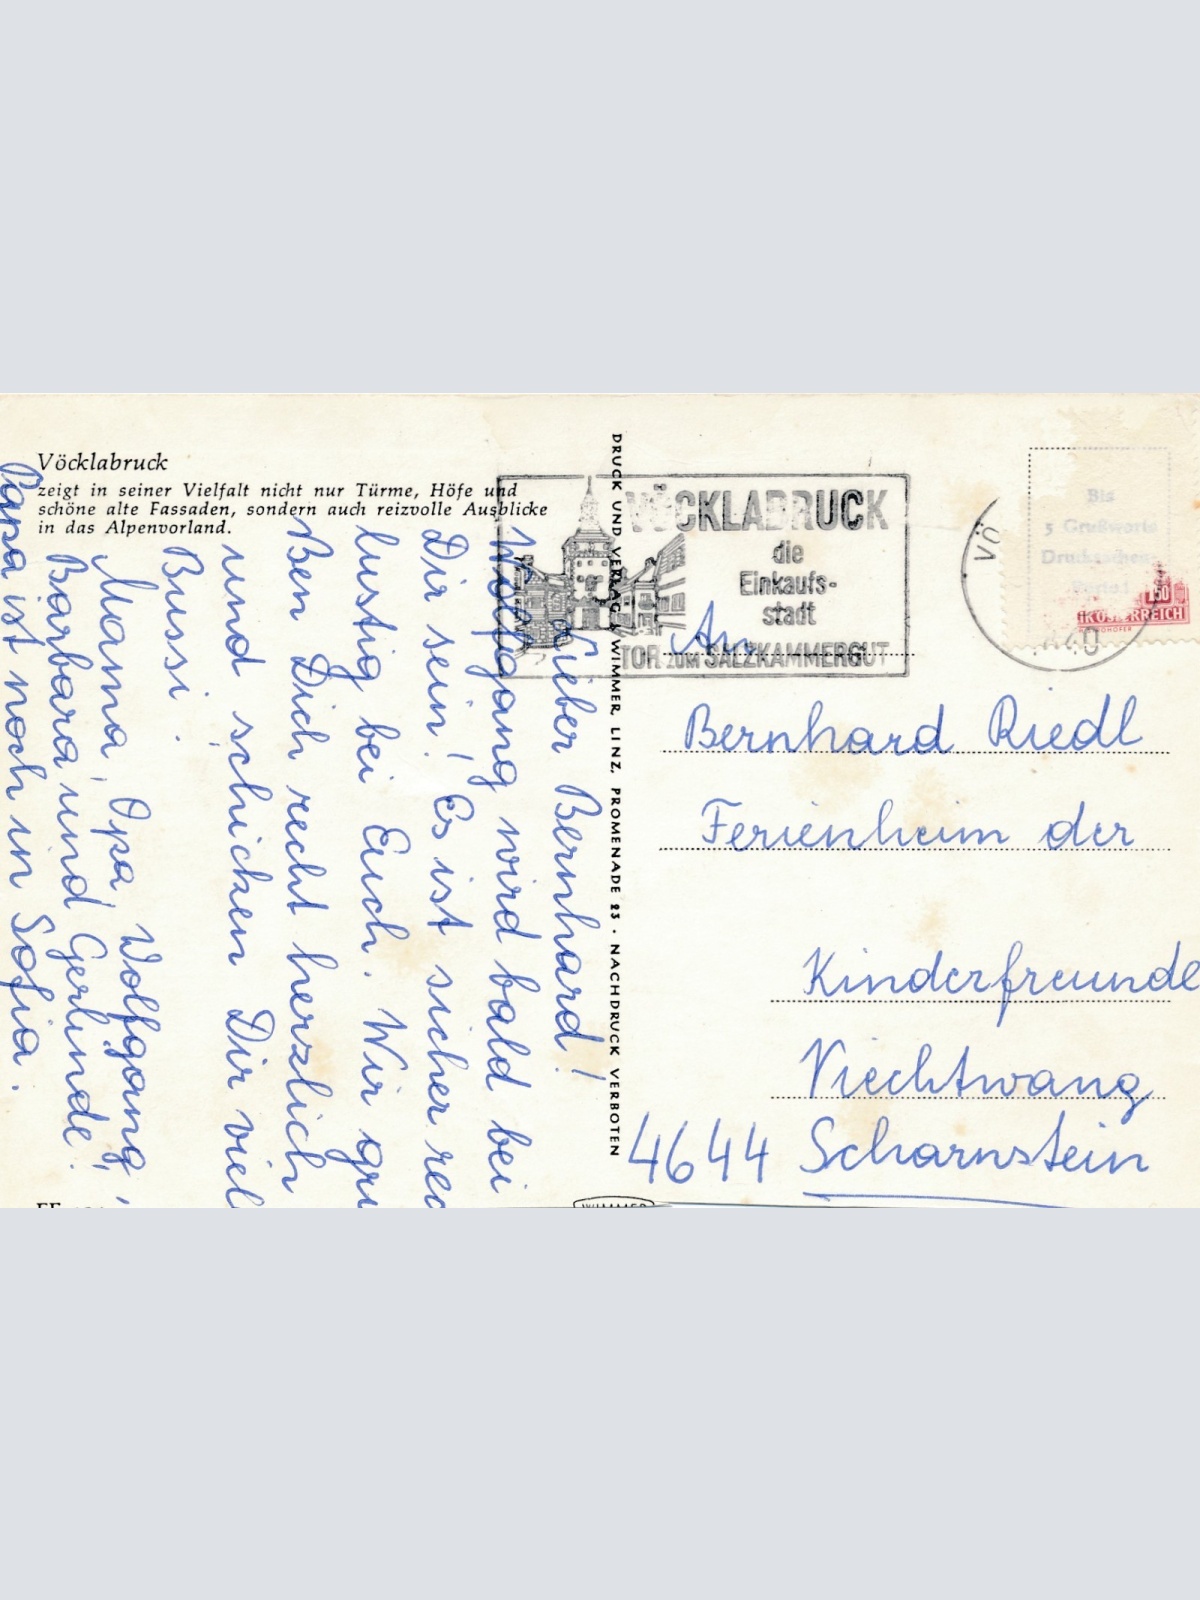 Vöcklabruck
zeigt in seiner Vielfalt nicht nur Türme, Höfe und
schöne alte Fassaden, sondern auch reizvolle Ausblicke
in das Alpenvorland.
Lieber Bernhard!
Wolfgang wird bald bei
Dir sein! Es ist sicher
lustig bei Euch. Wir
Ben Dich recht herzlich
und schicken Dir
Bussi.
Mama, Opa, Wolfgang,
Barbara und Gerlinde!
Papa ist noch in Sofia.
DRUCK UND VERLAG WIMMER, LINZ, PROMENADE 23 · NACHDRUCK VERBOTEN
VÖCKLABRUCK
die
Einkaufs-
stadt
TOR ZUM SALZKAMMERGUT
VÖ
Bis
5 Grußworte
Drucksachen-
1.50
ÖSTERREICH
An
Bernhard Riedl
Ferienheim der
Kinderfreunde
Viechtwang
4644 Scharnstein
WIMMER